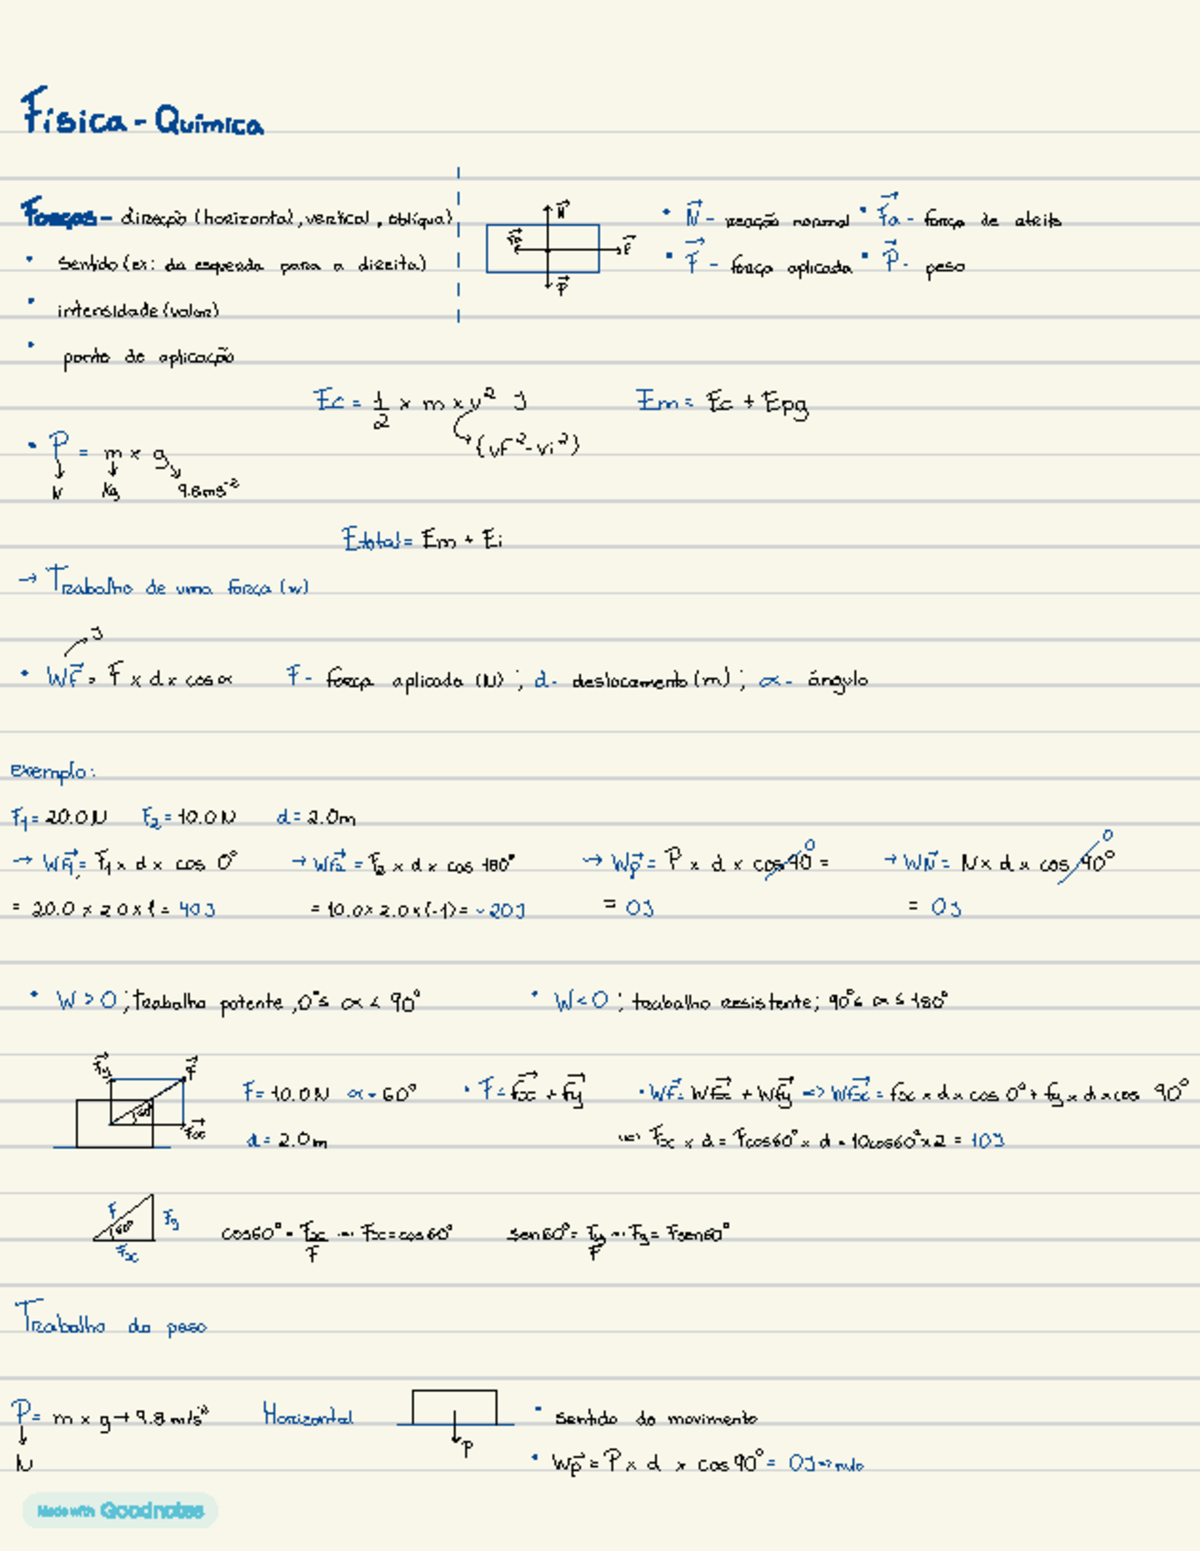 Física - Química
Forças - direção (horizontal, vertical, oblíqua)
• Sentido (ex: da esquerda para a direita)
• intensidade (valor)
• ponto de aplicação
N⃗
Fa⃗ F⃗
P⃗
• N⃗ - reação normal • Fa⃗ - força de atrito
• F⃗ - força aplicada • P⃗ - peso
Ec = 1/2 × m × v² J Em = Ec + Epg
(vf² - vi²)
• P = m × g
N Kg 9.8ms⁻²
Etotal = Em + Ei
→ Trabalho de uma força (w)
J
• WF⃗ = F × d × cos α F - força aplicada (N) ; d - deslocamento (m) ; α - ângulo
exemplo:
F1 = 20.0N F2 = 10.0N d = 2.0m
→ WF1⃗ = F1 × d × cos 0° → WF2⃗ = F2 × d × cos 180° → Wp⃗ = P × d × cos 90 = 0 → WN⃗ = N × d × cos 90° 0
= 20.0 × 2.0 × 1 = 40J = 10.0 × 2.0 × (-1) = -20J = 0J = 0J
• W > 0 ; trabalho potente, 0° ≤ α < 90° • W < 0 ; trabalho resistente; 90° < α ≤ 180°
Fy⃗ F⃗
60°
Fx⃗
F = 10.0N α = 60° • F = Fx⃗ + Fy⃗ • WF⃗ = WFx⃗ + WFy⃗ => WFx⃗ = Fx × d × cos 0° + Fy × d × cos 90°
d = 2.0m => Fx × d = Fcos60° × d = 10cos60° × 2 = 10J
F 60° Fy
Fx
cos60° = Fx/F → Fx = cos60° sen60° = Fy/F → Fy = Fsen60°
Trabalho do peso
P = m × g → 9.8 m/s² Horizontal • sentido do movimento
N
P
• Wp⃗ = P × d × cos 90° = 0J => nulo
Made with Goodnotes